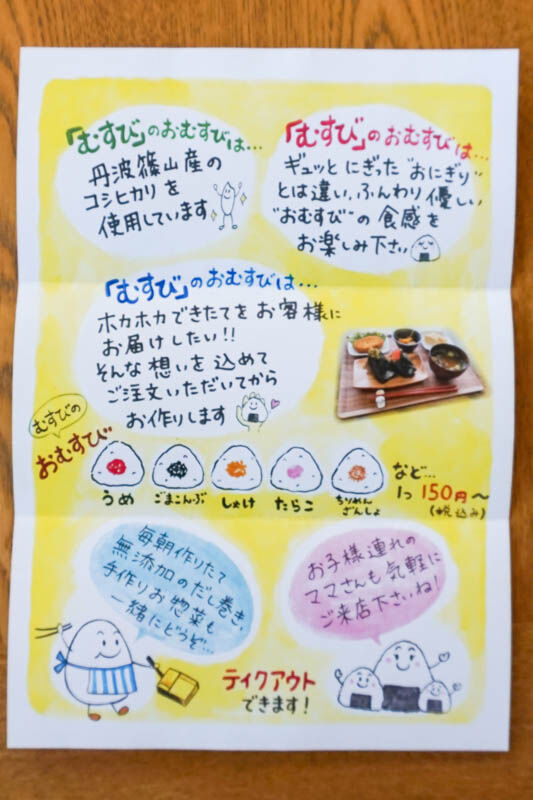 「むすび」のおむすびは…
丹波篠山産の
コシヒカリを
使用しています
「むすび」のおむすびは…
ギュッとにぎった"おにぎり"
とは違い、ふんわり優しい
"おむすび"の食感を
お楽しみ下さい
「むすび」のおむすびは…
ホカホカできたてをお客様に
お届けしたい!!
そんな想いを込めて
ご注文いただいてから
お作りします
むすびの
おむすび
うめ
ごまこんぶ
しゃけ
たらこ
ちりめん
ざんしょ
など…
1つ 150円〜
(税込み)
毎朝作りたて
無添加のだし巻き、
手作りお惣菜も
一緒にどうぞ…
お子様連れの
ママさんも気軽に
ご来店下さいね!
テイクアウト
できます!